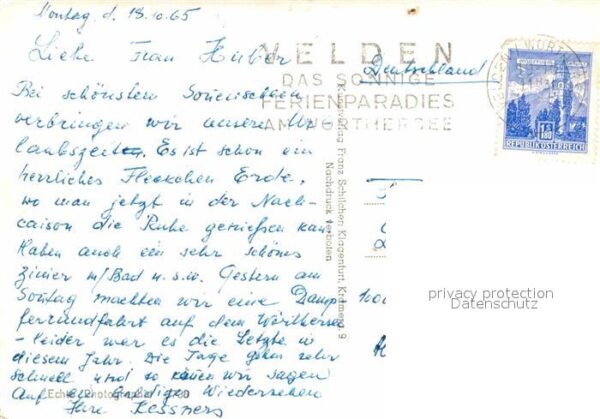 Montag d. 18.10.65
Liebe Frau Huber
Bei schönstem Sonnenschein
verbringen wir unsere Ur
laubszeit. Es ist schon ein
herrliches Fleckchen Erde,
wo man jetzt in der Nach-
saison die Ruhe genießen kann
Haben auch ein sehr schönes
Zimmer m/Bad u.s.w. Gestern am
Sontag machten wir eine Damp
ferrundfahrt auf dem Wörthersee
- leider war es die Letzte in
diesem Jahr. Die Tage gehen sehr
schnell und so sagen
Auf ein Wiedersehen
Ihre Kessners
Deutschland
VELDEN
DAS SONNIGE
FERIENPARADIES
AM WÖRTHERSEE
REPUBLIK ÖSTERREICH
S 1.80
Kunstverlag Franz Schilcher, Klagenfurt,
Nachdruck verboten
Echte Photographie
privacy protection
Datenschutz